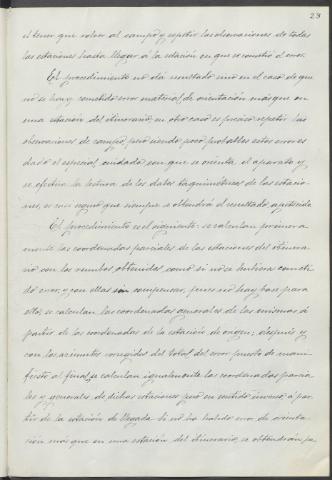 23
el tener que volver al campo y repetir las observaciones de todas
las estaciones hasta llegar á la estación en que se cometió el error.
El procedimiento no dá resultado sino en el caso de que
no se haya cometido error material de orientación más que en
una estación del itinerario, en otro caso es preciso repetir las
observaciones de campo, pero siendo poco probables estos errores
dado el especial cuidado con que se orienta el aparato y
se efectua la lectura de los datos taquimétricos de las estacio-
nes, es casi seguro que siempre se obtendrá el resultado apetecido.
El procedimiento es el siguiente: se calculan primera
mente las coordenadas parciales de las estaciones del itinera
rio con los rumbos obtenidos como si no se hubiera cometi
do error, y con ellas sin compensar, pues no hay base para
ello, se calculan las coordenadas generales de las mismas á
partir de las coordenadas de la estación de origen; después y
con los azimutes corregidos del total del error puesto de mani-
fiesto al final, se calculan igualmente las coordenadas parcia
les y generales de dichas estaciones pero en sentido inverso, á par-
tir de la estación de llegada. Si no ha habido error de orienta-
ción más que en una estación del itinerario, se obtendrán pa